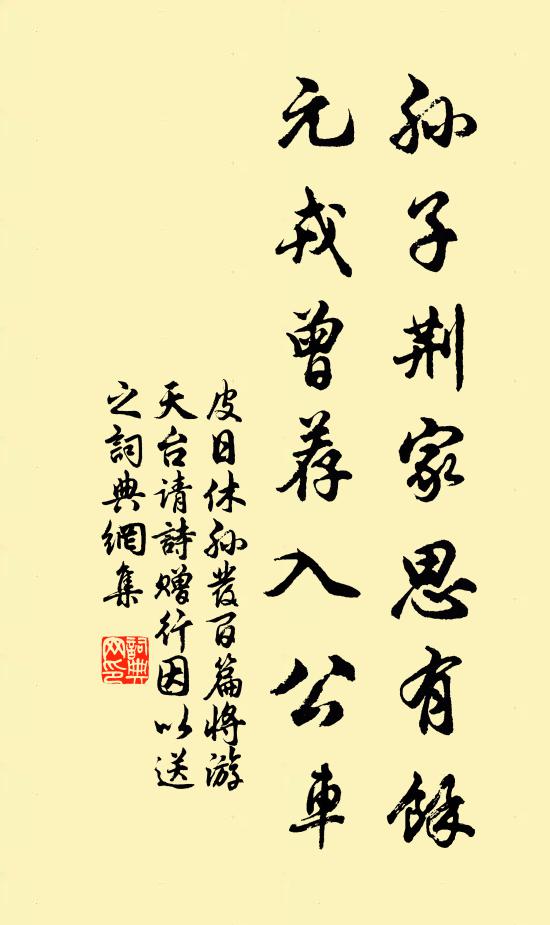 孙子荆家思有馀
元戎曾荐入公車
皮日休孙發百篇将游
天台请詩赠行因以送
之詞典網集
詞典
网印